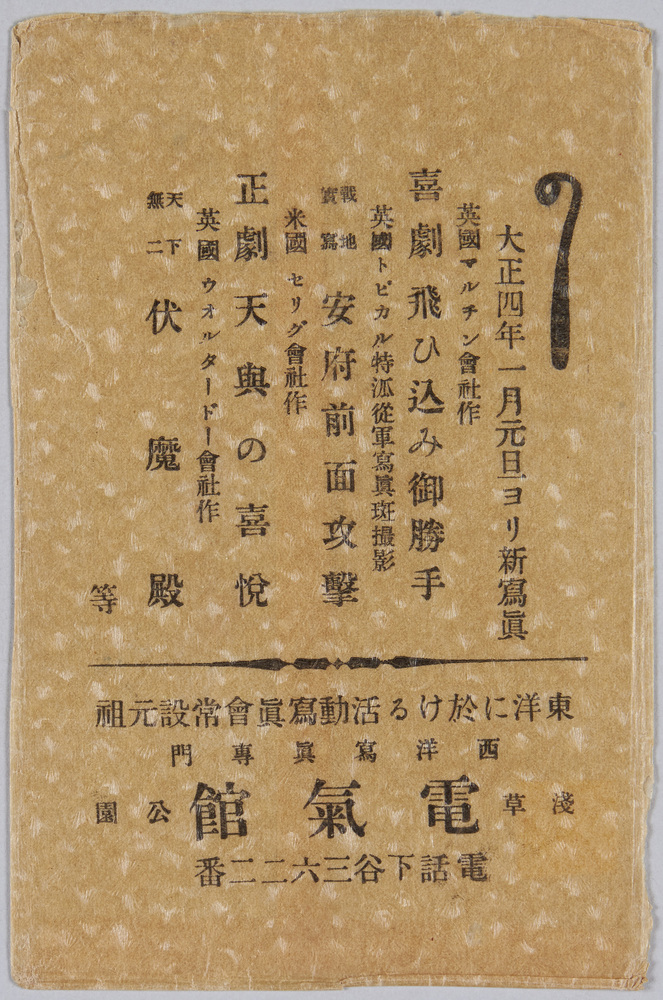 大正四年一月元旦ヨリ新寫眞
英國マルチン會社作
喜劇飛ひ込み御勝手
英國トピカル特派從軍寫眞班撮影
戰地實寫 安府前面攻擊
米國セリグ會社作
正劇天與の喜悅
英國ウオルタードー會社作
天下無二 伏魔殿
等
東洋に於ける活動寫眞會常設元祖
西洋寫眞專門
淺草公園
電氣館
電話下谷三六二二番